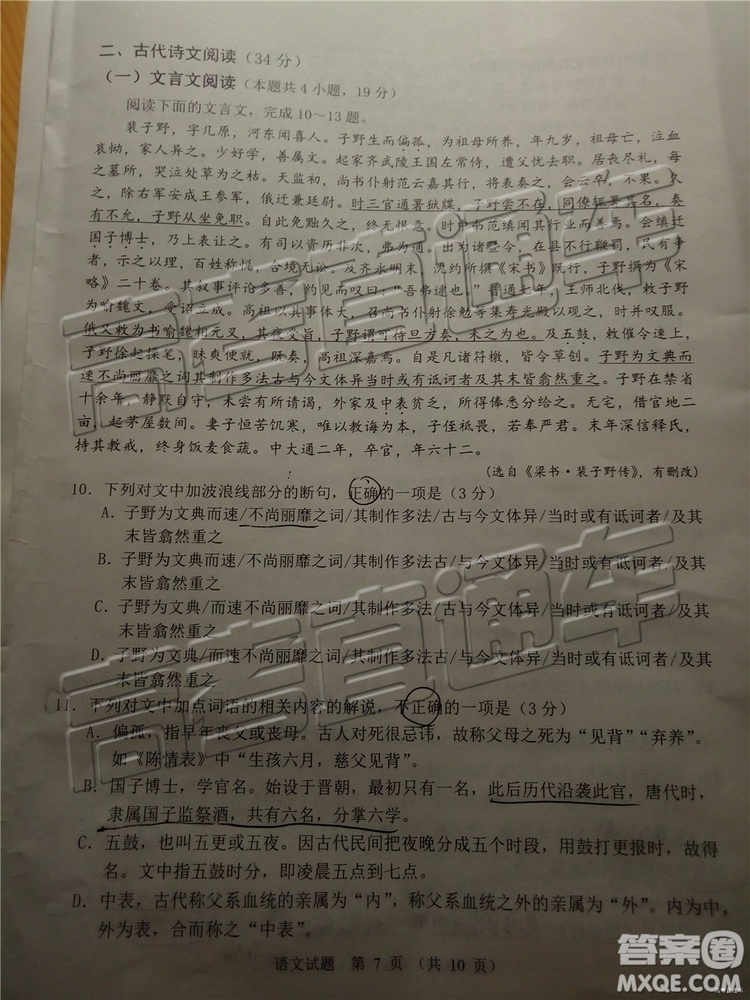 二、古代诗文阅读（34分）
（一）文言文阅读（本题共4小题，19分）
阅读下面的文言文，完成10～13题。
裴子野，字几原，河东闻喜人。子野生而偏孤，为祖母所养，年九岁，祖母亡，泣血
哀恸，家人异之。少好学，善属文。起家齐武陵王国左常侍，遭父忧去职。居丧尽礼，每
之墓所，哭泣处草为之枯。天监初，尚书仆射范云嘉其行，将表奏之，会云卒，不果。久
之，除右军安成王参军，俄迁兼廷尉。时三官通署狱牒，子野尝不在，同僚辄署其名，奏
有不允，子野从坐免职。自此免黜久之，终无恨意。时中书范缜闻其行业而善焉。会缜迁
国子博士，乃上表让之。有司以资历非次，弗为通。出为诸暨令，在县不行鞭罚，民有争
者，示之以理，百姓称悦，合境无讼。及齐永明末，沈约所撰《宋书》既行，子野更为《宋
略》二十卷。其叙事评论多善，约见而叹曰：“吾弗逮也。”普通七年，王师北伐，敕子野
为喻魏文，受诏立成。高祖以其事体大，召尚书仆射徐勉等集寿光殿以观之，时并叹服。
俄又敕为书喻魏相元叉，其夜受旨，子野谓可待旦方奏，未之为也。及五鼓，敕催令速上，
子野徐起操笔，昧爽便就，既奏，高祖深嘉焉。自是凡诸符檄，皆令草创。子野为文典而
速不尚丽靡之词其制作多法古与今文体异当时或有诋诃者及其末皆翕然重之。子野在禁省
十余年，静默自守，未尝有所请谒，外家及中表贫乏，所得俸悉分给之。无宅，借官地二
亩，起茅屋数间。妻子恒苦饥寒，唯以教诲为本，子侄祗畏，若奉严君。末年深信释氏，
持其教戒，终身饭麦食蔬。中大通二年，卒官，年六十二。
（选自《梁书·裴子野传》，有删改）
10．下列对文中加波浪线部分的断句，正确的一项是（3分）
A．子野为文典而速/不尚丽靡之词/其制作多法古/与今文体异/当时或有诋诃者/及其
末皆翕然重之
B．子野为文典而速/不尚丽靡之词/其制作多法/古与今文体异/当时或有诋诃者/及其
末皆翕然重之
C．子野为文典/而速不尚丽靡之词/其制作多法古/与今文体异/当时或有诋诃者/及其
末皆翕然重之
D．子野为文典/而速不尚丽靡之词/其制作多法古/与今文体异/当时或有诋诃者/及其
末皆翕然重之
11．下列对文中加点词语的相关内容的解说，不正确的一项是（3分）
A．偏孤，指早年丧父或丧母。古人对死很忌讳，故称父母之死为“见背”“弃养”。
如《陈情表》中“生孩六月，慈父见背”。
B．国子博士，学官名。始设于晋朝，最初只有一名，此后历代沿袭此官，唐代时，
隶属国子监祭酒，共有六名，分掌六学。
C．五鼓，也叫五更或五夜。因古代民间把夜晚分成五个时段，用鼓打更报时，故得
名。文中指五鼓时分，即凌晨五点到七点。
D．中表，古代称父系血统的亲属为“内”，称父系血统之外的亲属为“外”。内为中，
外为表，合而称之“中表”。
语文试题 第7页（共10页）
高考直通车
高考直通车
答案圈
MXQE.COM